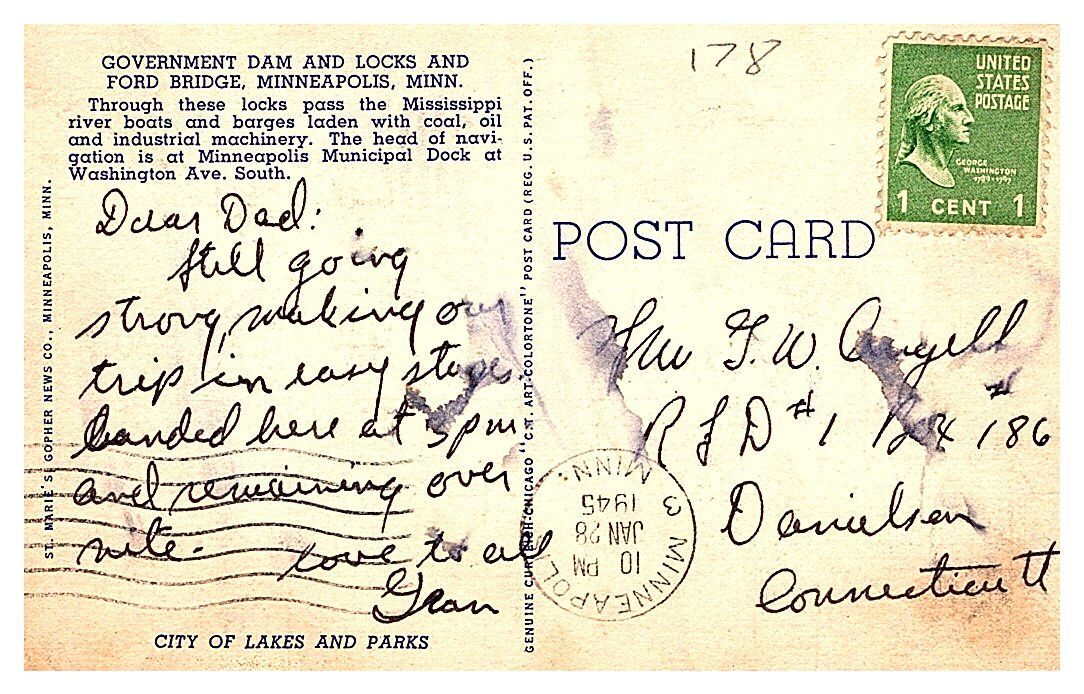 GOVERNMENT DAM AND LOCKS AND
FORD BRIDGE, MINNEAPOLIS, MINN.
Through these locks pass the Mississippi
river boats and barges laden with coal, oil
and industrial machinery. The head of navi-
gation is at Minneapolis Municipal Dock at
Washington Ave. South.
Dear Dad:
Still going
strong, making our
trip in easy stages.
Landed here at 3 pm
and remaining over
nite.
Love to all
CITY OF LAKES AND PARKS
ST. MARIE'S GOPHER NEWS CO., MINNEAPOLIS, MINN.
GENUINE CURTEICH-CHICAGO "C.T. ART-COLORTONE" POST CARD (REG. U.S. PAT. OFF.)
178
UNITED
STATES
POSTAGE
GEORGE
WASHINGTON
1789-1797
1 CENT 1
POST CARD
F. W. Angell
RFD #1 #186
Danielson
Connecticutt
MINNEAPOLIS 3 MINN.
10 PM
JAN 28
1945